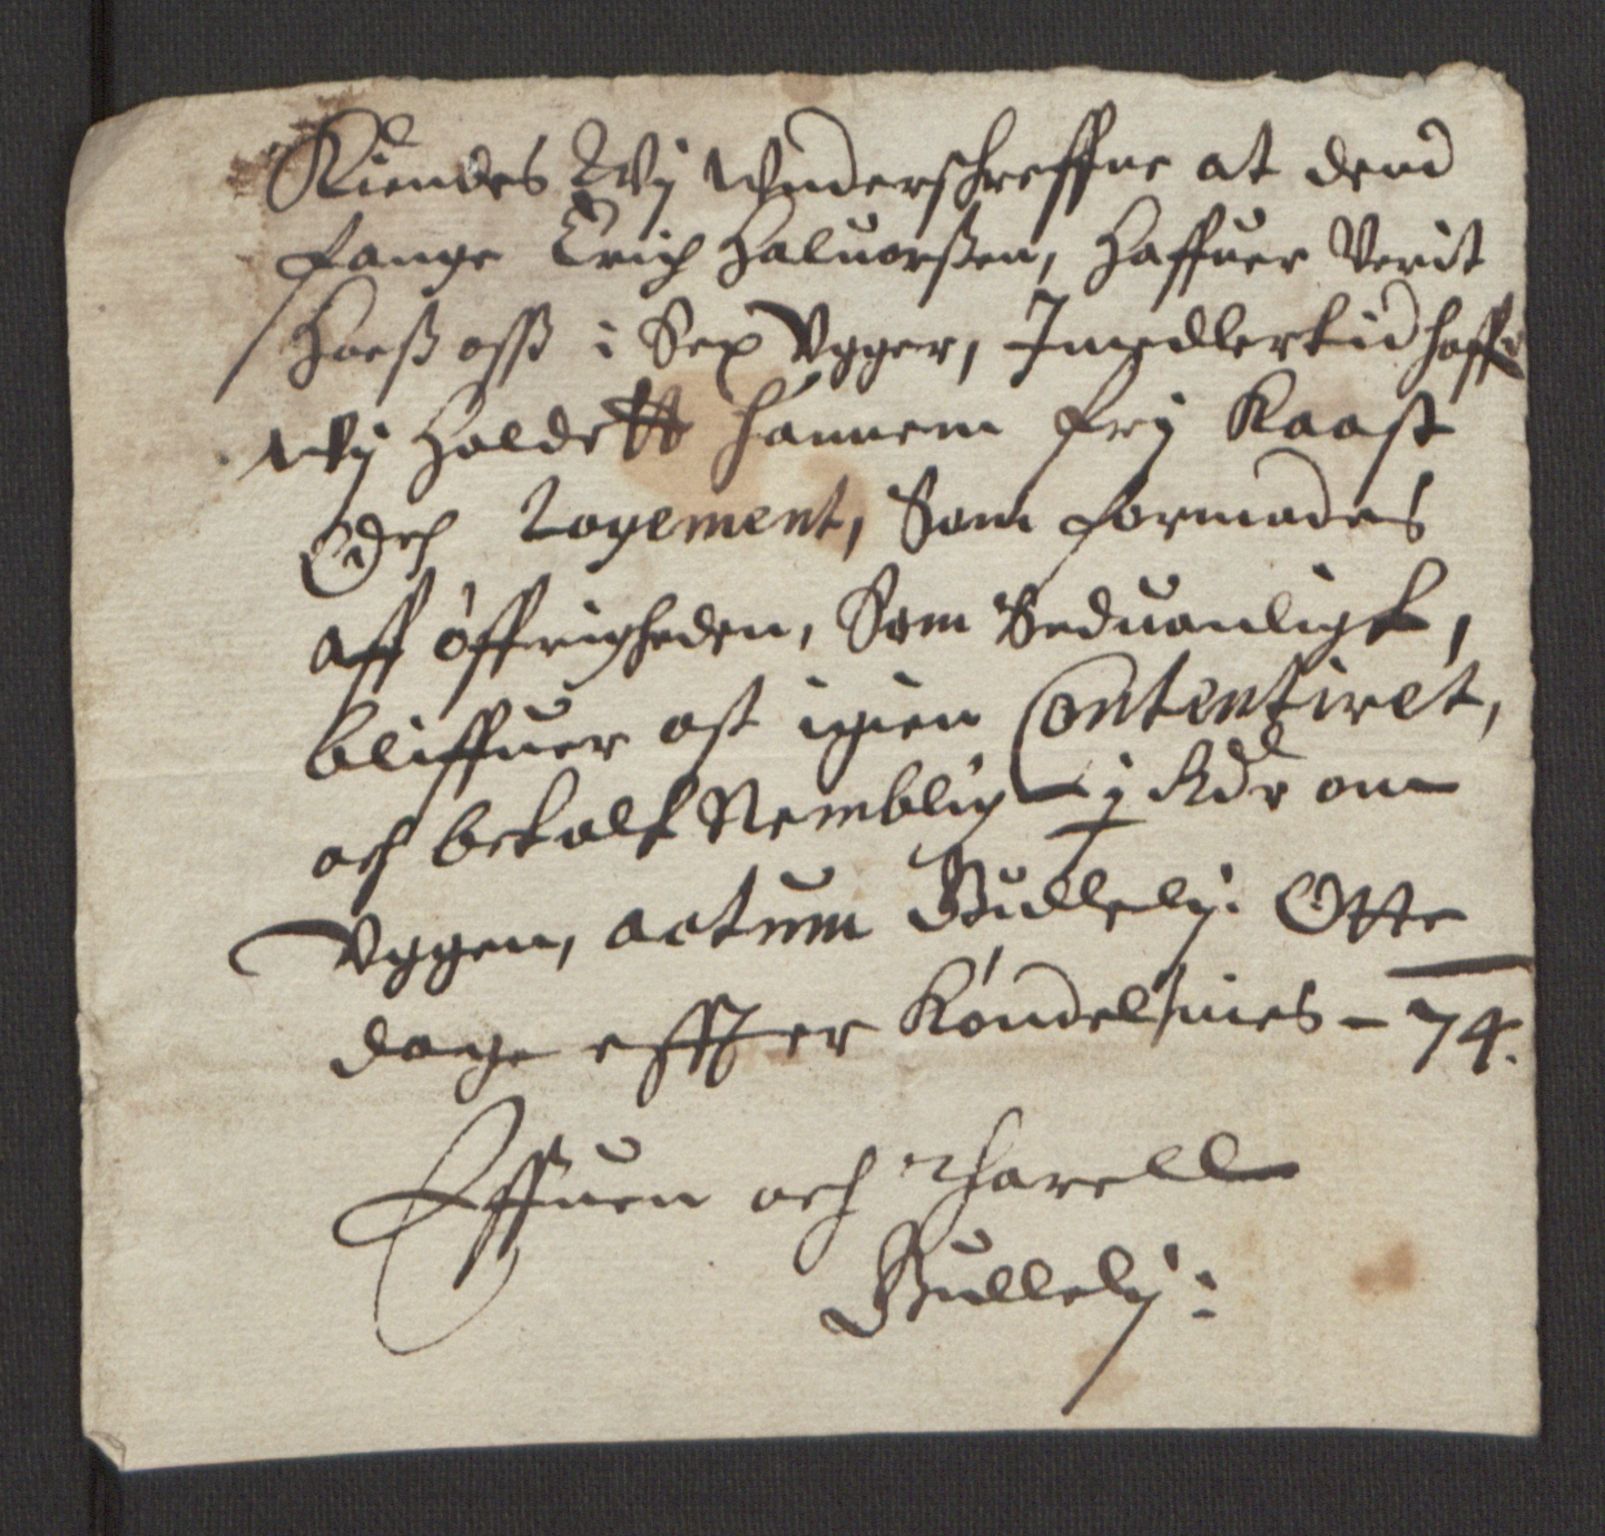 Kiendes Wij Wnderschreffne at dend
fange Erich Haluorßen, Haffuer Verit
Hoeß oß i Sex Vgger, Imedlertid haffr
Wij Holdett hannem frij Kaast
Och Logement, Som formodes
aff öffrigheden, Som Seduanligt,
bliffuer oß igien Contentiret,
och betalt Nemblig – j Rdr om
Vggen, actum Bullelij: Otte
dage effter Köndelmes – 74.
Effuen och Tharell
Bullelij: